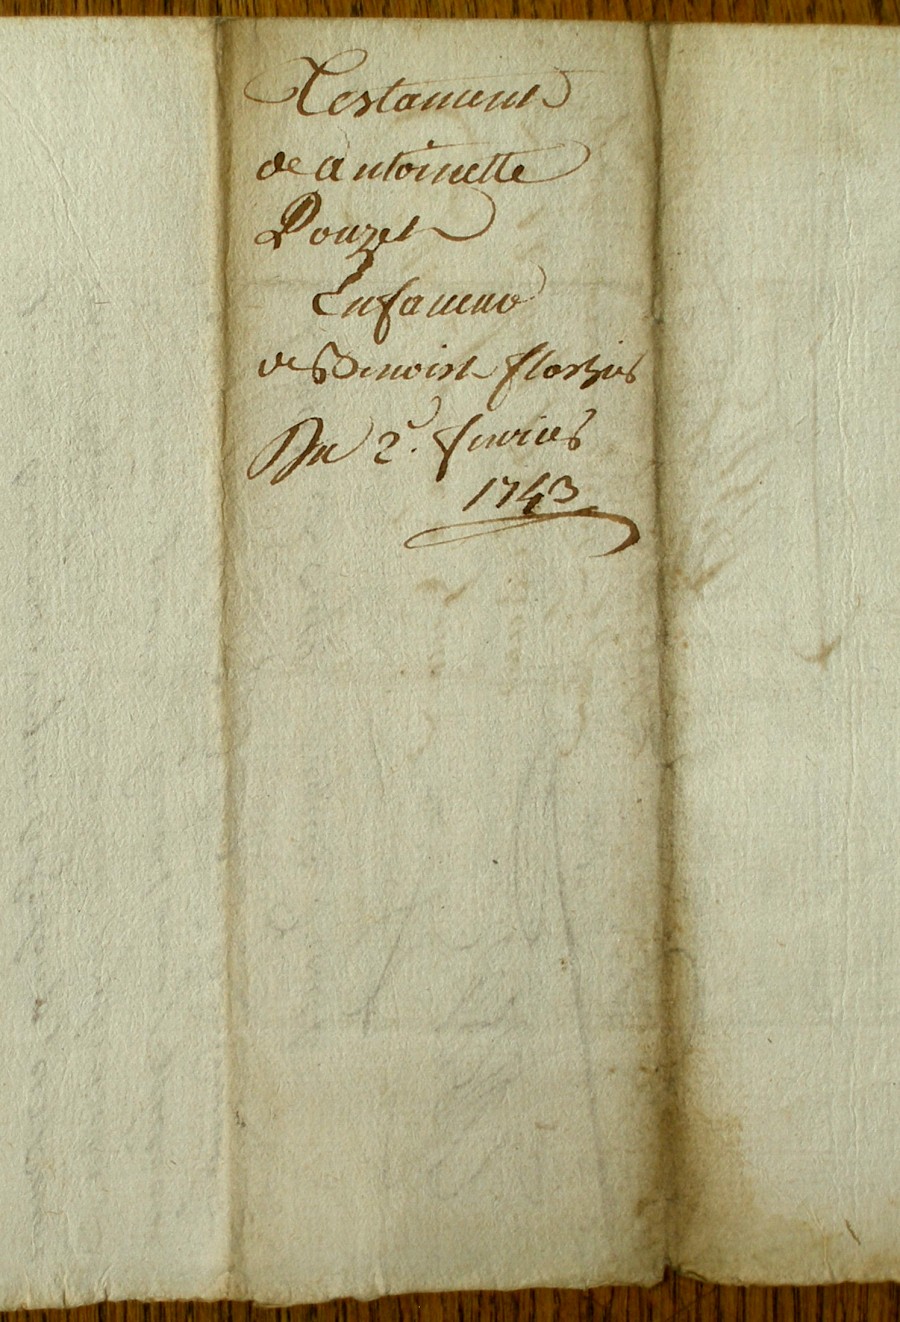 Testament
de antoinette
Pouzet
En faveur
de Benoist
Du 2e. fevrier
1743